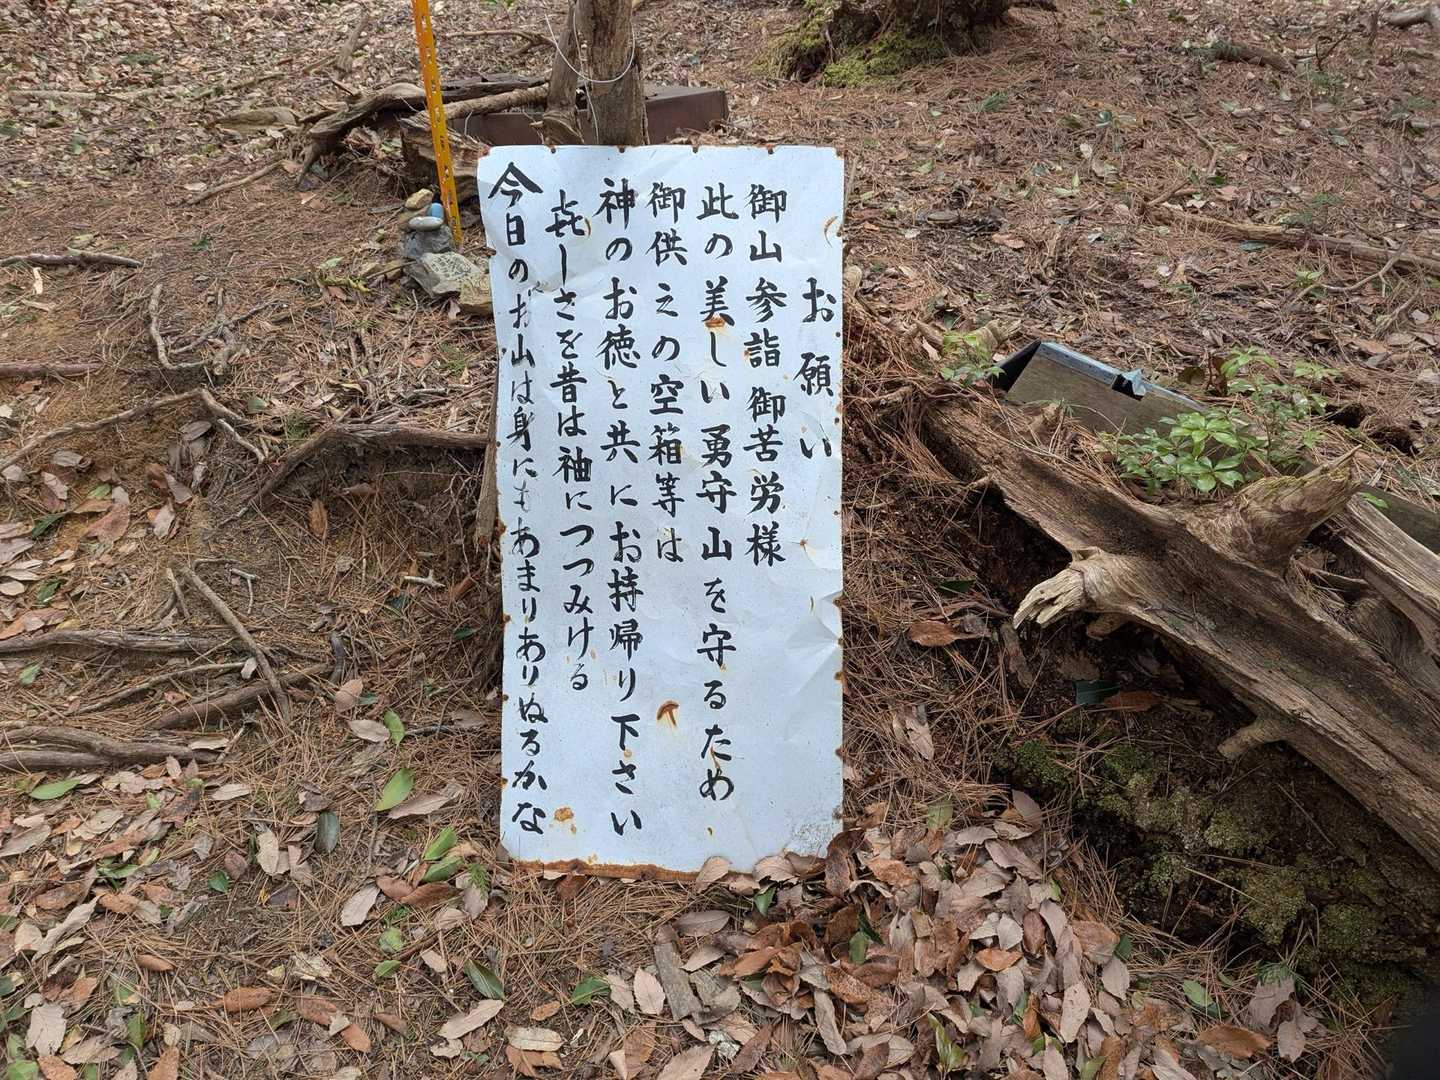 お願い
御山参詣御苦労様
此の美しい勇守山を守るため
御供えの空箱等は
神のお徳と共にお持帰り下さい
㐂しさを昔は袖につつみける
今日のお山は身にもあまりありぬるかな